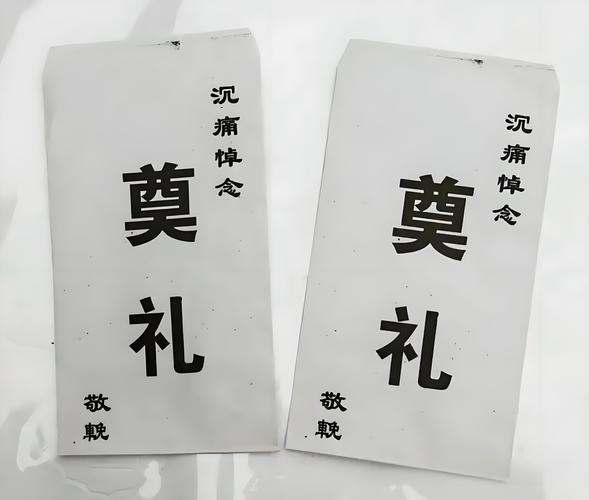 沉痛悼念
奠礼
敬輓
沉痛悼念
奠礼
敬輓